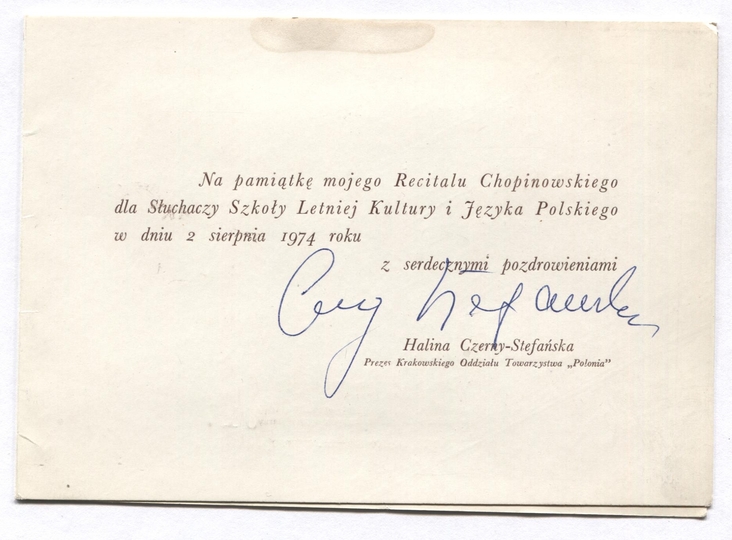 Na pamiątkę mojego Recitalu Chopinowskiego
dla Słuchaczy Szkoły Letniej Kultury i Języka Polskiego
w dniu 2 sierpnia 1974 roku
z serdecznymi pozdrowieniami
Halina Czerny-Stefańska
Prezes Krakowskiego Oddziału Towarzystwa „Polonia"